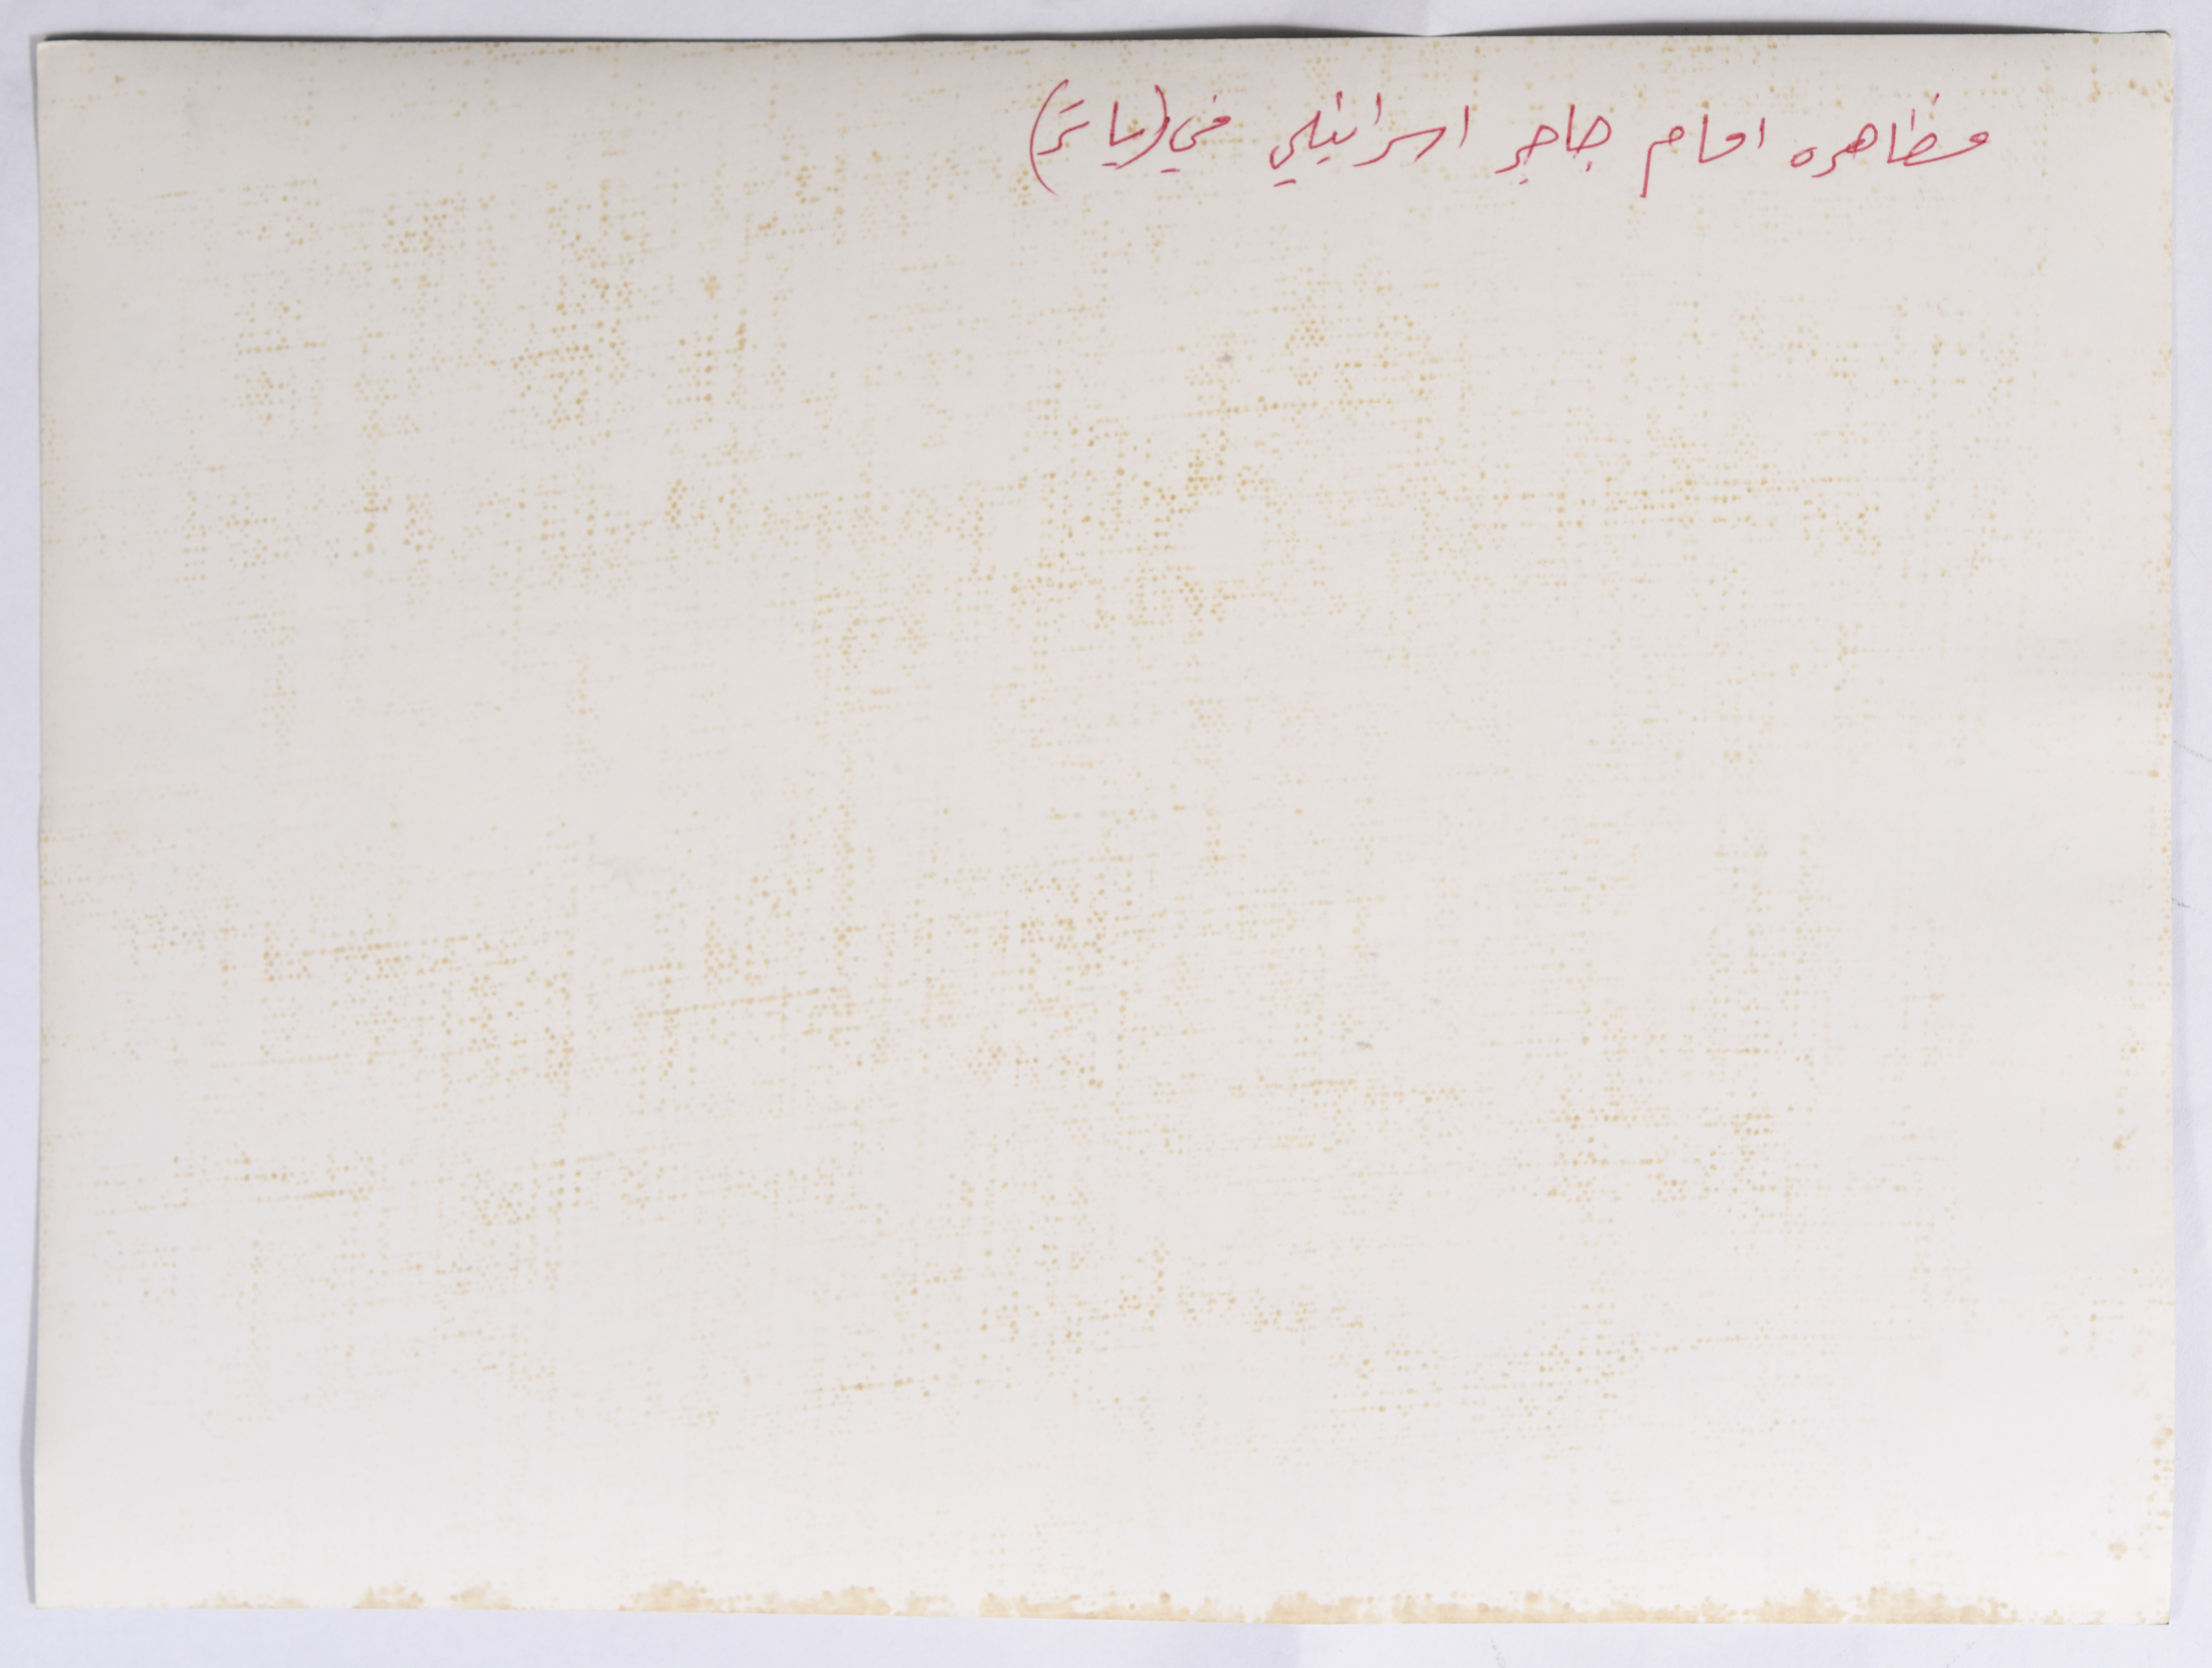 مظاهره امام حاجز اسرائيلي في (ياتر)